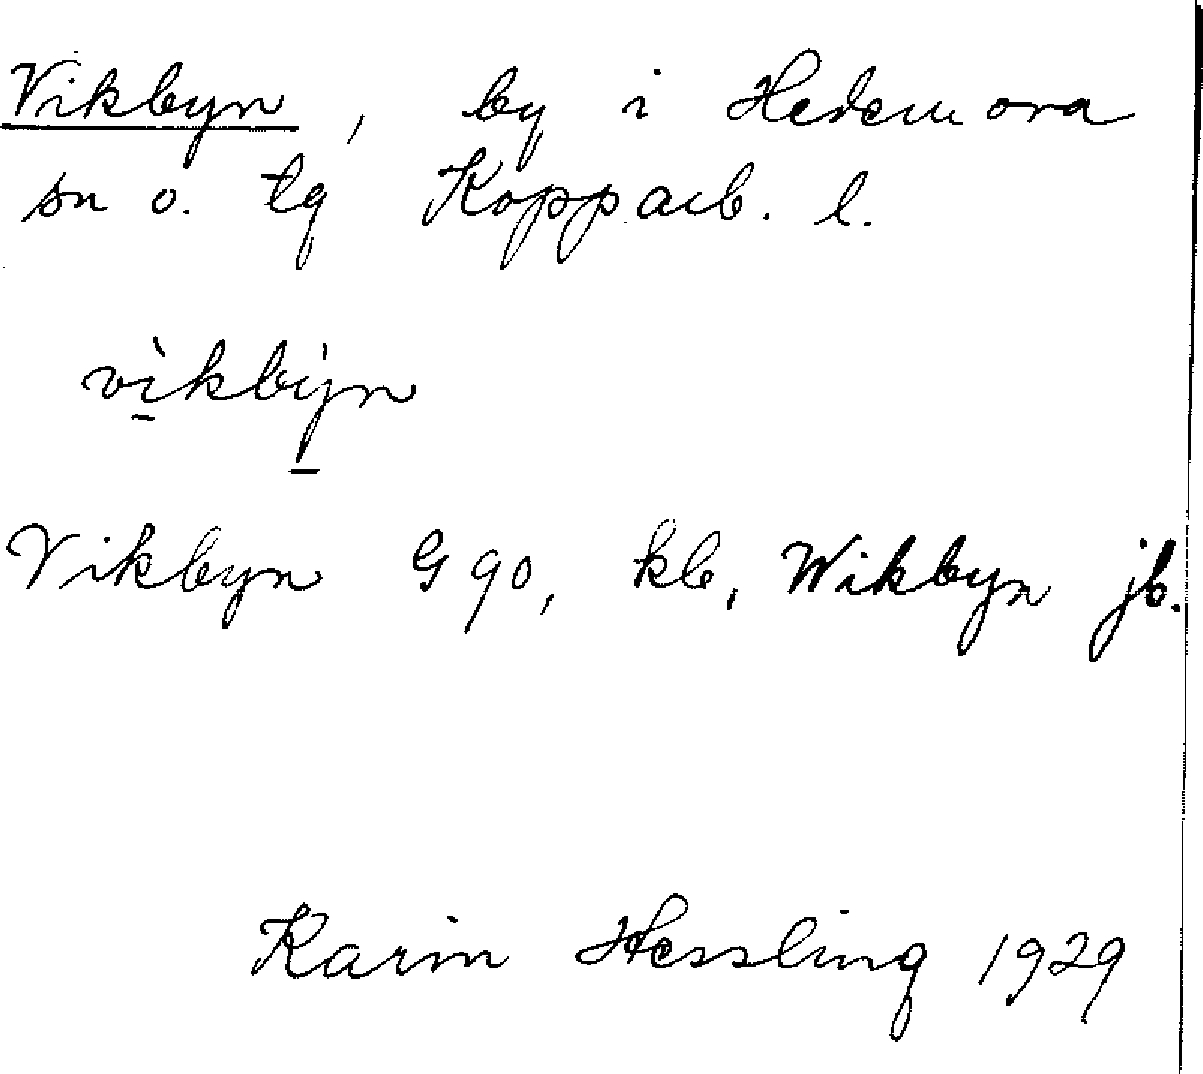 Vikbyn, by i Hedemora
sn o. tg Kopparb. l.
vì̠kbỳ̠n
Vikbyn G 90, kb, Wikbyn jb.
Karin Hessling 1929